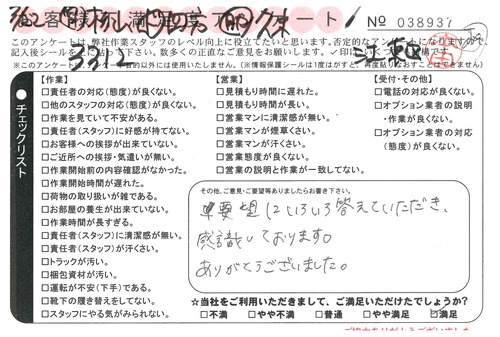 お客様 満足度アンケート
No 038937
このアンケートは、弊社作業スタッフのレベル向上に役立てたいと思います。否定的なアンケートになりますので、
※このアンケートは 目的以外には使用いたしません。(※情報保護シールは1度はがすと、再度貼りなおすことはできません)
3312
チェックリスト
【作業】
□責任者の対応(態度)が良くない。
□他のスタッフの対応(態度)が良くない。
□作業を見ていて不安がある。
□責任者(スタッフ)に好感が持てない。
□お客様への挨拶が出来ていない。
□ご近所への挨拶・気遣いが無い。
□作業開始前の内容確認がなかった。
□作業開始時間が遅れた。
□荷物の取り扱いが雑である。
□お部屋の養生が出来ていない。
□作業時間が長すぎる。
□責任者(スタッフ)に清潔感が無い。
□責任者(スタッフ)が汗くさい。
□トラックが汚い。
□梱包資材が汚い。
□運転が不安(下手)である。
□靴下の履き替えをしてない。
□スタッフにやる気がみられない。
【営業】
□見積もり時間に遅れた。
□見積もり時間が長い。
□営業マンに清潔感が無い。
□営業マンが煙草くさい。
□営業マンが汗くさい。
□営業態度が良くない。
□営業の説明と作業が一致してない。
【受付・その他】
□電話の対応が良くない。
□オプション業者の説明
・作業が良くない。
□オプション業者の対応
(態度)が良くない。
その他、ご意見・ご要望等ありましたらお書き下さい。
要望にいろいろ答えていただき、
感謝しております。
ありがとうございました。
☆当社をご利用いただきまして、ご満足いただけたでしょうか?
□不満 □やや不満 □普通 □やや満足 ☑満足
ご協力ありがとうございました